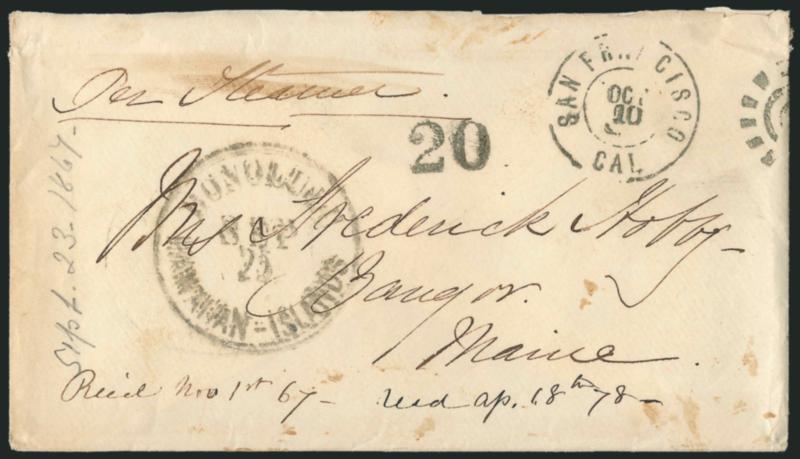 SAN FRANCISCO
OCT
10
CAL.
Per Steamer.
20
HONOLULU
SEP
25
HAWAIIAN-ISLANDS
Mrs Frederick Hobbs
Bangor.
Maine.
Sept. 23. 1867-
Recd Nov 1st 67- read ap. 18th 78-